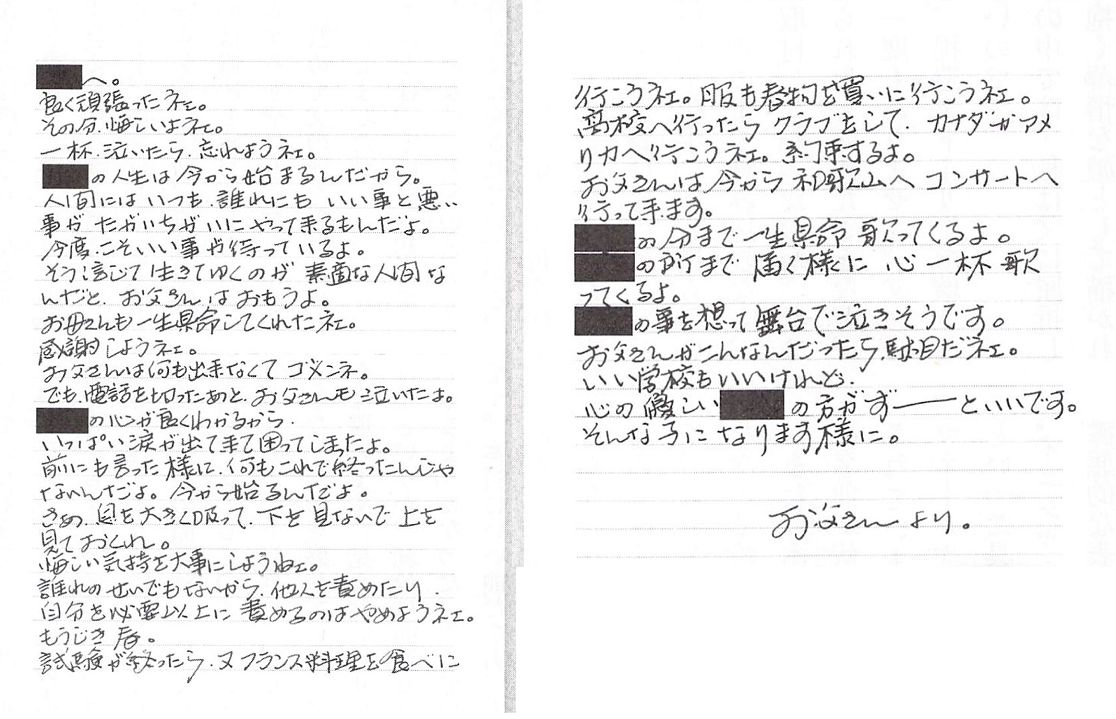 へ。
良く頑張ったネェ。
その分、悔しいよネェ。
一杯、泣いたら、忘れようネェ。
の人生は今から始まるんだから。
人間にはいつも、誰れにも いい事と悪い
事が たがいちがいにやって来るもんだよ。
今度、こそいい事が待っているよ。
そう信じて生きてゆくのが 素適な人間な
んだと、お父さんはおもうよ。
お母さんも一生県命してくれたネェ。
感謝しようネェ。
お父さんは何も出来なくて ゴメンネ。
でも、電話を切ったあと、お父さんも泣いたよ。
の心が良くわかるから、
いっぱい涙が出て来て困ってしまたよ。
前にも言った様に、何もこれで終ったんじゃ
ないんだよ。今から始るんだよ。
さぁ、息を大きく吸って、下を見ないで上を
見ておくれ。
悔しい気持を大事にしようねェ。
誰れのせいでもないから、他人を責めたり、
自分を必要以上に責めるのはやめようネェ。
もうじき春。
試験が終ったら、又フランス料理を食べに
行こうネェ。服も春物を買いに行こうネェ。
高校へ行ったら クラブをして、カナダかアメ
リカへ行こうネェ。約束するよ。
お父さんは今から 和歌山へ コンサートへ
行って来ます。
の分まで一生県命 歌ってくるよ。
の所まで 届く様に 心一杯歌
ってくるよ。
の事を想って舞台で泣きそうです。
お父さんがこんなんだったら、駄目だネェ。
いい学校もいいけれど、
心の優しい の方がずーーっといいです。
そんな子になります様に。
お父さんより。